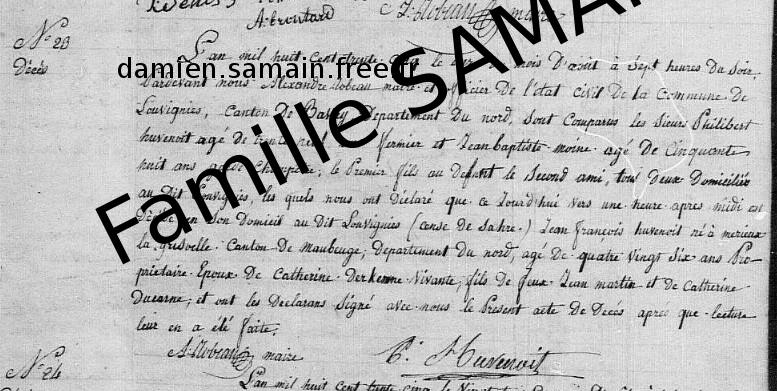 A. brontard maire
N° 23
Décès
L'an mil huit cent trente le mois D'aout à Sept heures Du Soir
Pardevant nous Alexandre Lobeau maire et officier De l'état civil De la Commune De
Louvignies, Canton De Bavay Departement Du nord, sont Comparus les Sieurs Philibert
huvenoit agé de trente fermier et Jean baptiste moine agé De Cinquante
huit ans garde Champetre, le Premier fils au Defunt le Second ami, tous Deux Domiciliés
au Dit Louvignies, les quels nous ont Déclaré que ce Jourd'hui vers une heure apres midi est
Décédé en Son Domicil au Dit Louvignies (cense de Sahre.) Jean François huvenoit né à merieux
la grisoelle Canton de Maubeuge, Departement Du nord, agé De quatre vingt Six ans Pro-
prietaire Epoux De Catherine Vivante, fils De feux Jean martin et De Catherine
Ducarne, et ont les Déclarans Signé avec nous le Present acte De Décés apres que lecture
leur en a été faite.
maire
P. Huvenoit
N° 24
L'an mil huit Cent trente Cinq le Vingt
damien.samain.free.fr
Famille SAMAIN